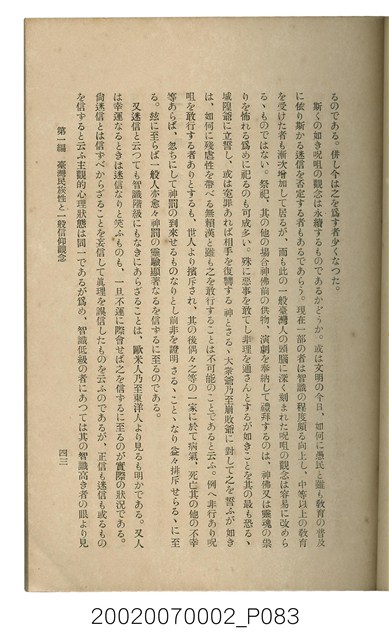 るのである。併し今は之を爲す者少くなつた。
斯くの如き呪咀の觀念は永續するものであるかどうか。或は文明の今日、如何に愚民と雖も敎育の普及
に依り斯かる迷信を否定する者もあるであらう。現在一部の者は智識の程度頗る向上し、中等以上の敎育
を受けた者も漸次增加して居るが、而も此の一般臺灣人の頭腦に深く刻まれた呪咀の觀念は容易に改めら
るゝものではない。祭祀、其の他の場合神佛前の供物、演劇を奉納して禮拜するのは、神佛又は靈魂の祟
りを怖れる爲めに祀るのも可成多い。殊に惡事を敢てし非理を通さんとするが如きことを其の最も恐るゝ
城隍爺に立誓し、或は寃罪あれば相手を復讐する神とさるゝ大衆爺乃至嶽敗爺に對して之を誓ふが如き
は、如何に殘虐性を帶べる無賴漢と雖も之を敢行することは不可能のことであると云ふ。例へ非行あり呪
咀を敢行する者ありとするも、世人より擯斥され、其の後偶々之等の一家に於て病氣、死亡其の他の不幸
等あらば、忽ちにして神罰の到來せるものなりとし前非を證明さるゝことゝなり益々排斥せらるゝに至
る。玆に至らば一般人亦愈々神罰の靈驗顯著なるを信ずるに至るのである。
又迷信と云つても智識階級にもなきにあらざることは、歐米人乃至東洋人より見るも明かである。又人
は幸運なるときは迷信なりと笑ふものも、一旦不運に際會せば之を信ずるに至るのが實際の狀況である。
尙迷信とは信ずべからざることを妄信して眞理を誤信したものを云ふのであるが、正信も迷信も或るもの
を信ずると云ふ主觀的心理狀態は同一であるが爲め、智識低級の者にあつては其の智識高き者の眼より見
第一編　臺灣民族性と一般信仰觀念
四三
20020070002_P083